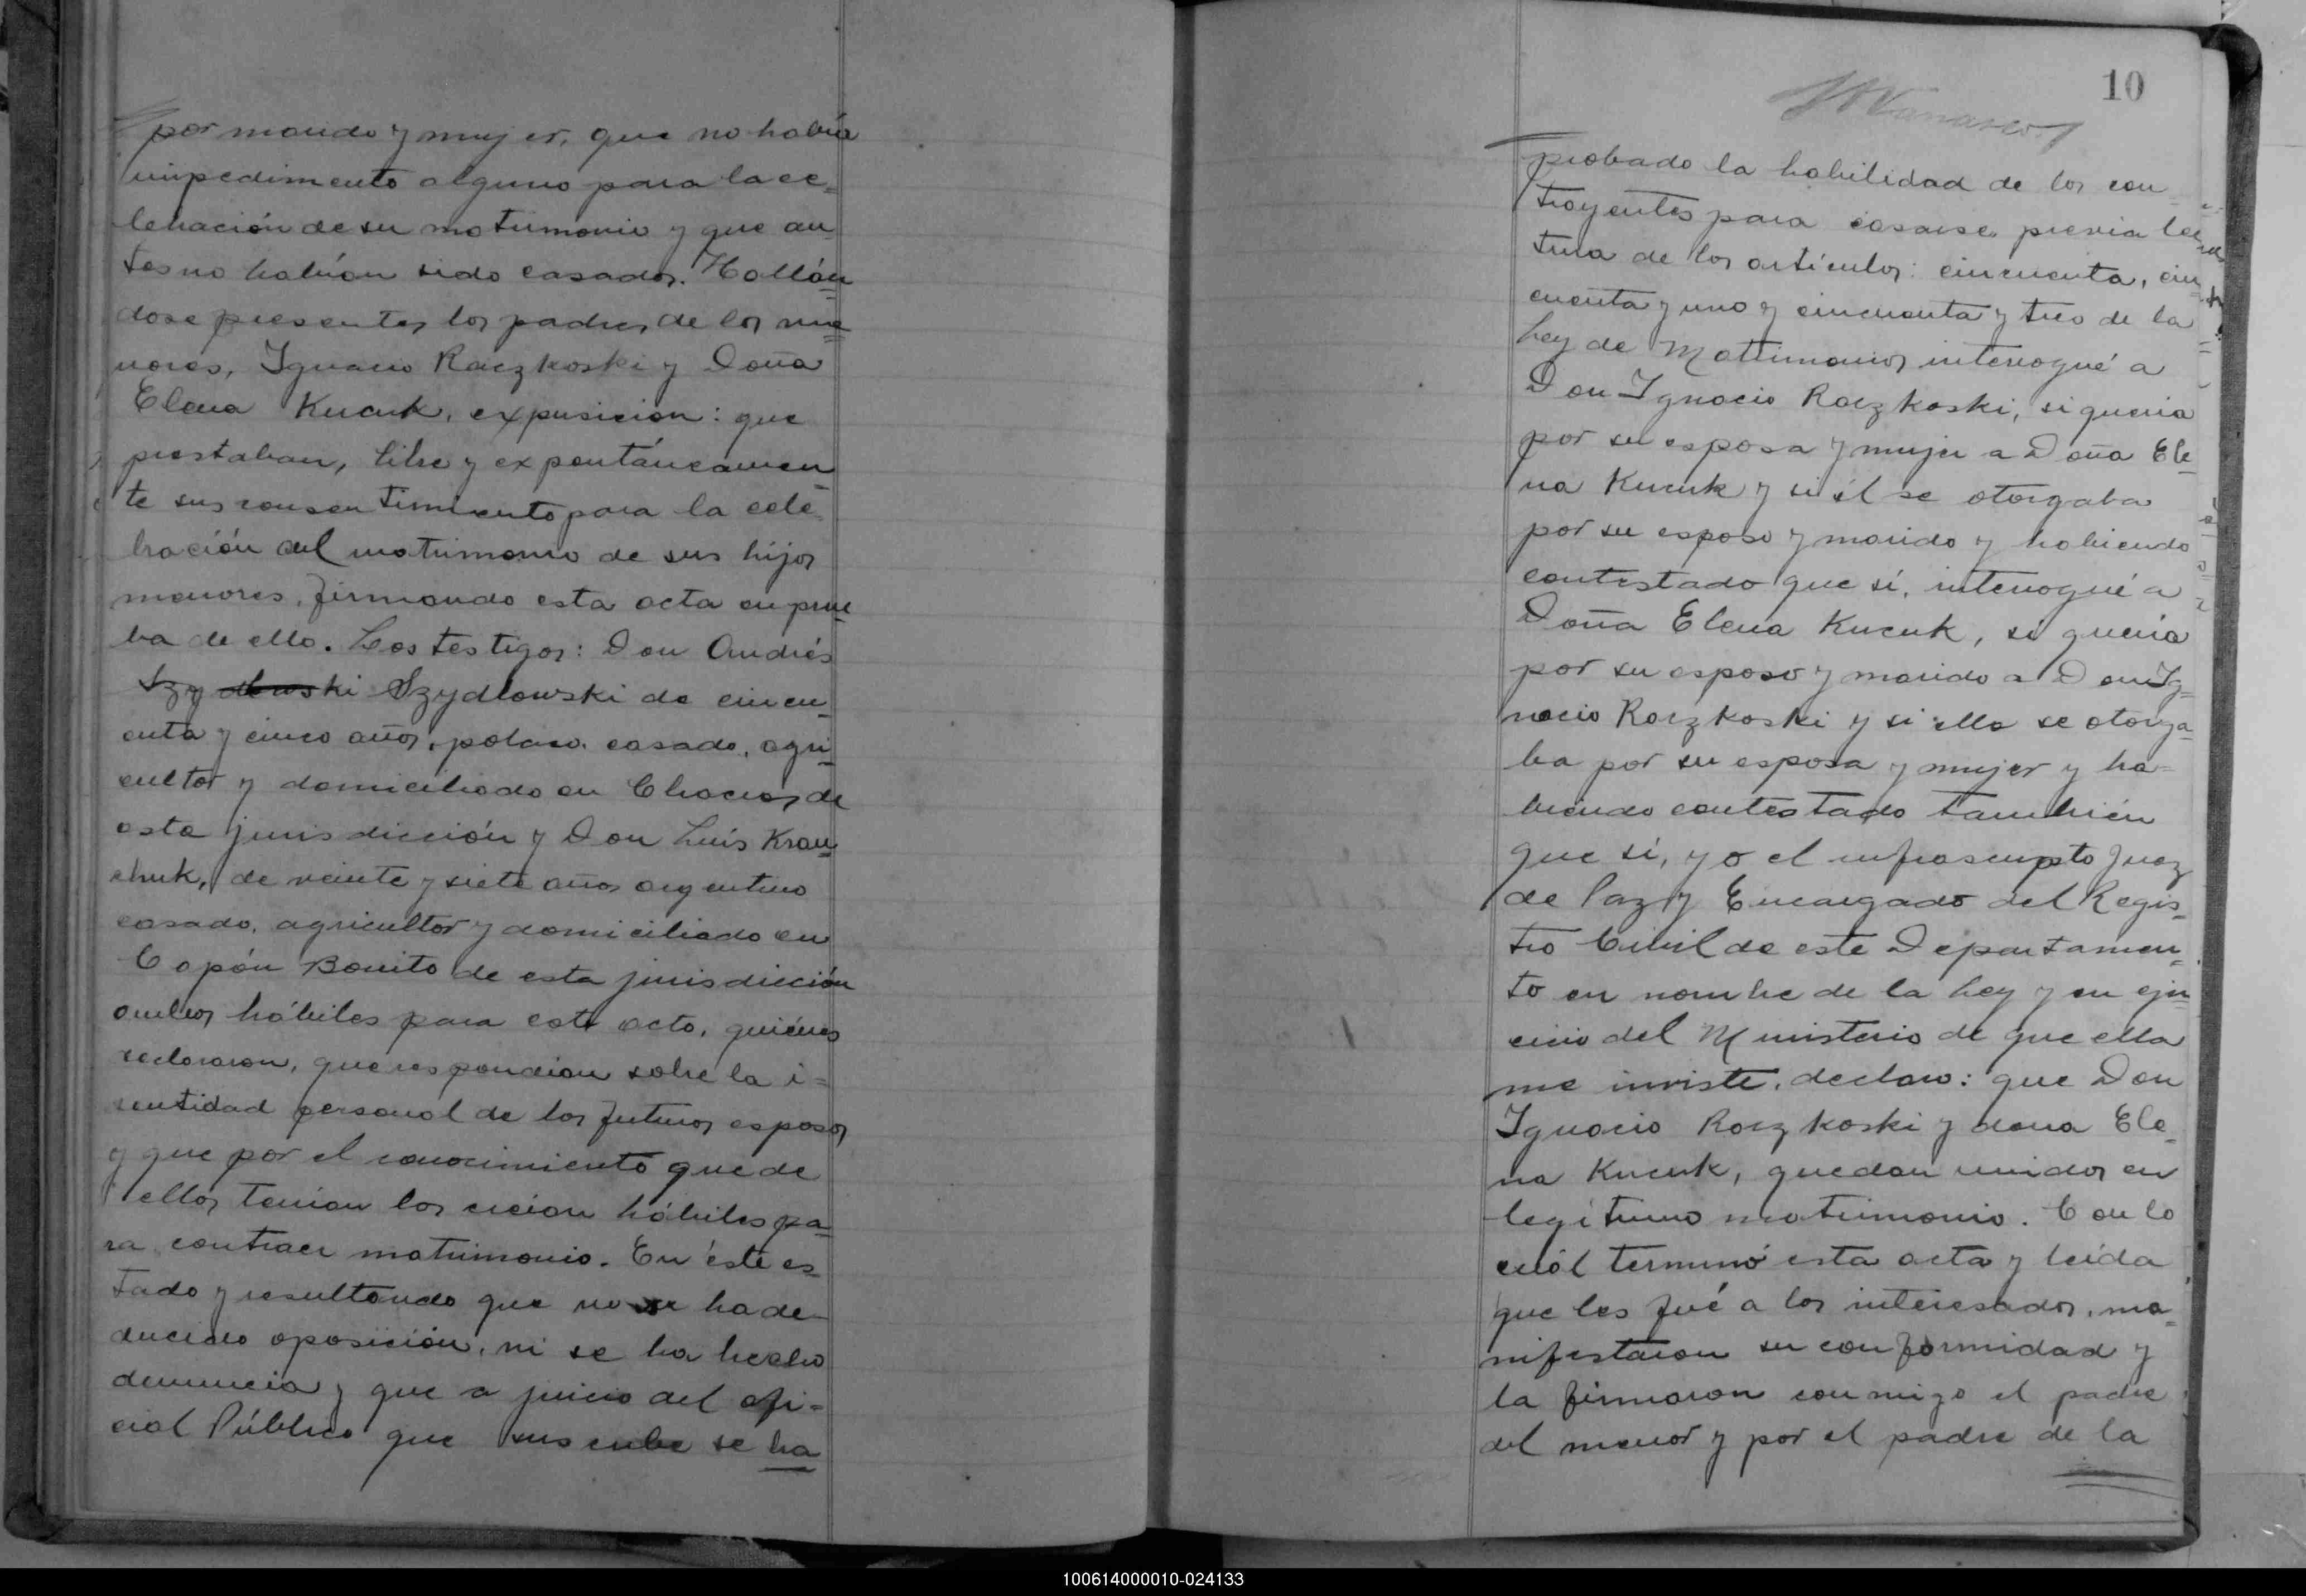 por marido y mujer, que no había
impedimento alguno para la ce=
lebración de su matrimonio y que an
tes no habían sido casados. Hallán=
dose presentes los padres de los me=
nores, Ignacio Raczkoski y Doña
Elena Kucuk, expusieron: que
prestaban, libre y expontáneamen=
te sus consentimiento para la cele
bración del matrimonio de sus hijos
menores, firmando esta acta en prue=
ba de ello. Los testigos: Don Andrés
Szydlowski Szydlowski de cincu=
enta y cinco años, polaco, casado, agri=
cultor y domiciliado en Chacras de
esta jurisdicción y Don Luís Krau=
chuk, de veinte y siete años argentino
casado, agricultor y domiciliado en
Capón Bonito de esta jurisdicción
ambos hábiles para este acto, quiénes
declararon, que respondían sobre la i=
dentidad personal de los futuros esposos
y que por el conocimiento que de
ellos tenían los creían hábiles pa=
ra contraer matrimonio. En éste es=
tado y resultando que no se ha de=
ducido oposición, ni se ha hecho
denuncia y que a juicio del ofi=
cial Público que suscribe se ha
10
probado la habilidad de los con
trayentes para casarse, previa lec
tura de los artículos: cincuenta, cin
cuenta y uno y cincuenta y tres de la
Ley de Matrimonios interrogué a
Don Ignacio Raczkoski, si quería
por su esposa y mujer a Doña Ele=
na Kucuk y si él se otorgaba
por su esposo y marido y habiendo
contestado que sí, interrogué a
Doña Elena Kucuk, si quería
por su esposo y marido a Don Ig=
nacio Raczkoski y si ella se otorga=
ba por su esposa y mujer y ha=
biendo contestado también
que sí, yo el infrascripto Juez
de Paz y Encargado del Regis=
tro Civil de este Departamen=
to en nombre de la Ley y en eje
cicio del Ministerio de que ella
me inviste, declaro: que Don
Ignacio Raczkoski y dona Ele=
na Kucuk, quedan unidos en
legítimo matrimonio. Con lo
cuál terminó esta acta y leída
que les fué a los interesados, ma=
nifestaron su conformidad y
la firmaron conmigo el padre
del menor y por el padre de la
100614000010-024133